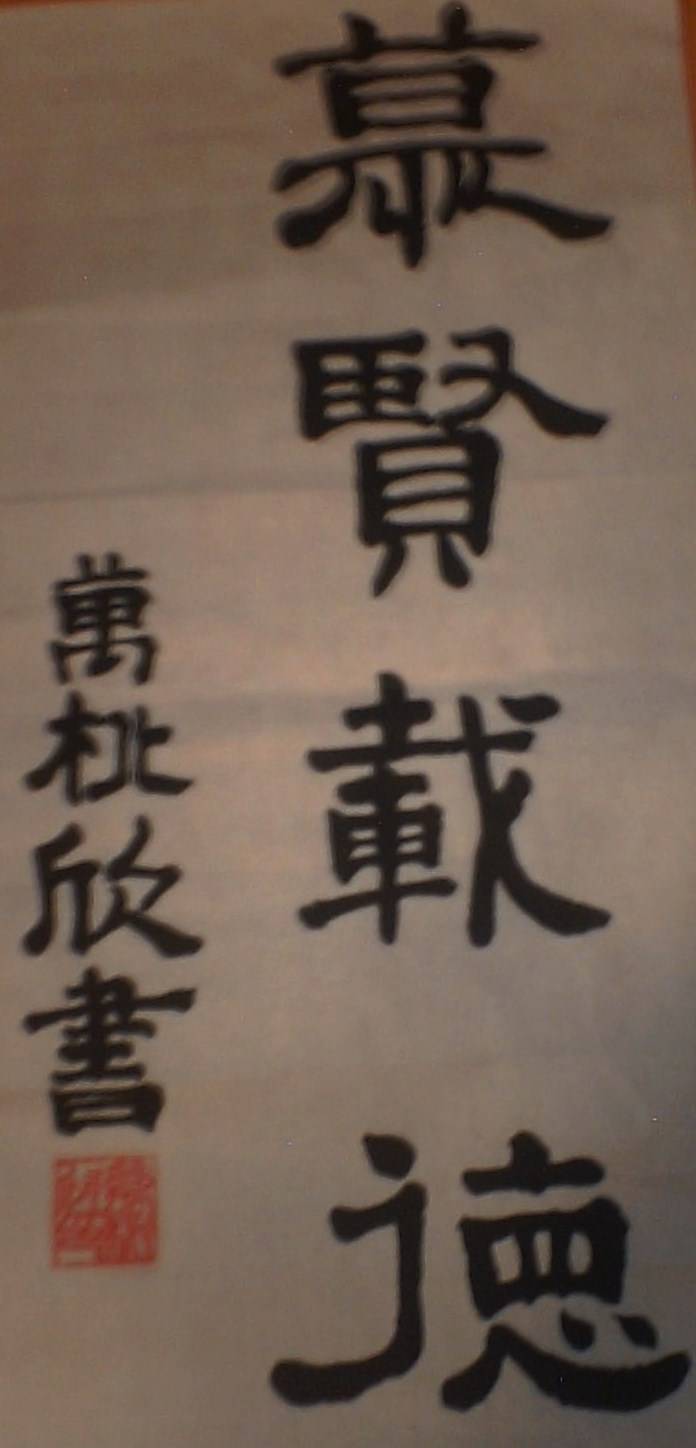 慕賢載德
萬桃欣書